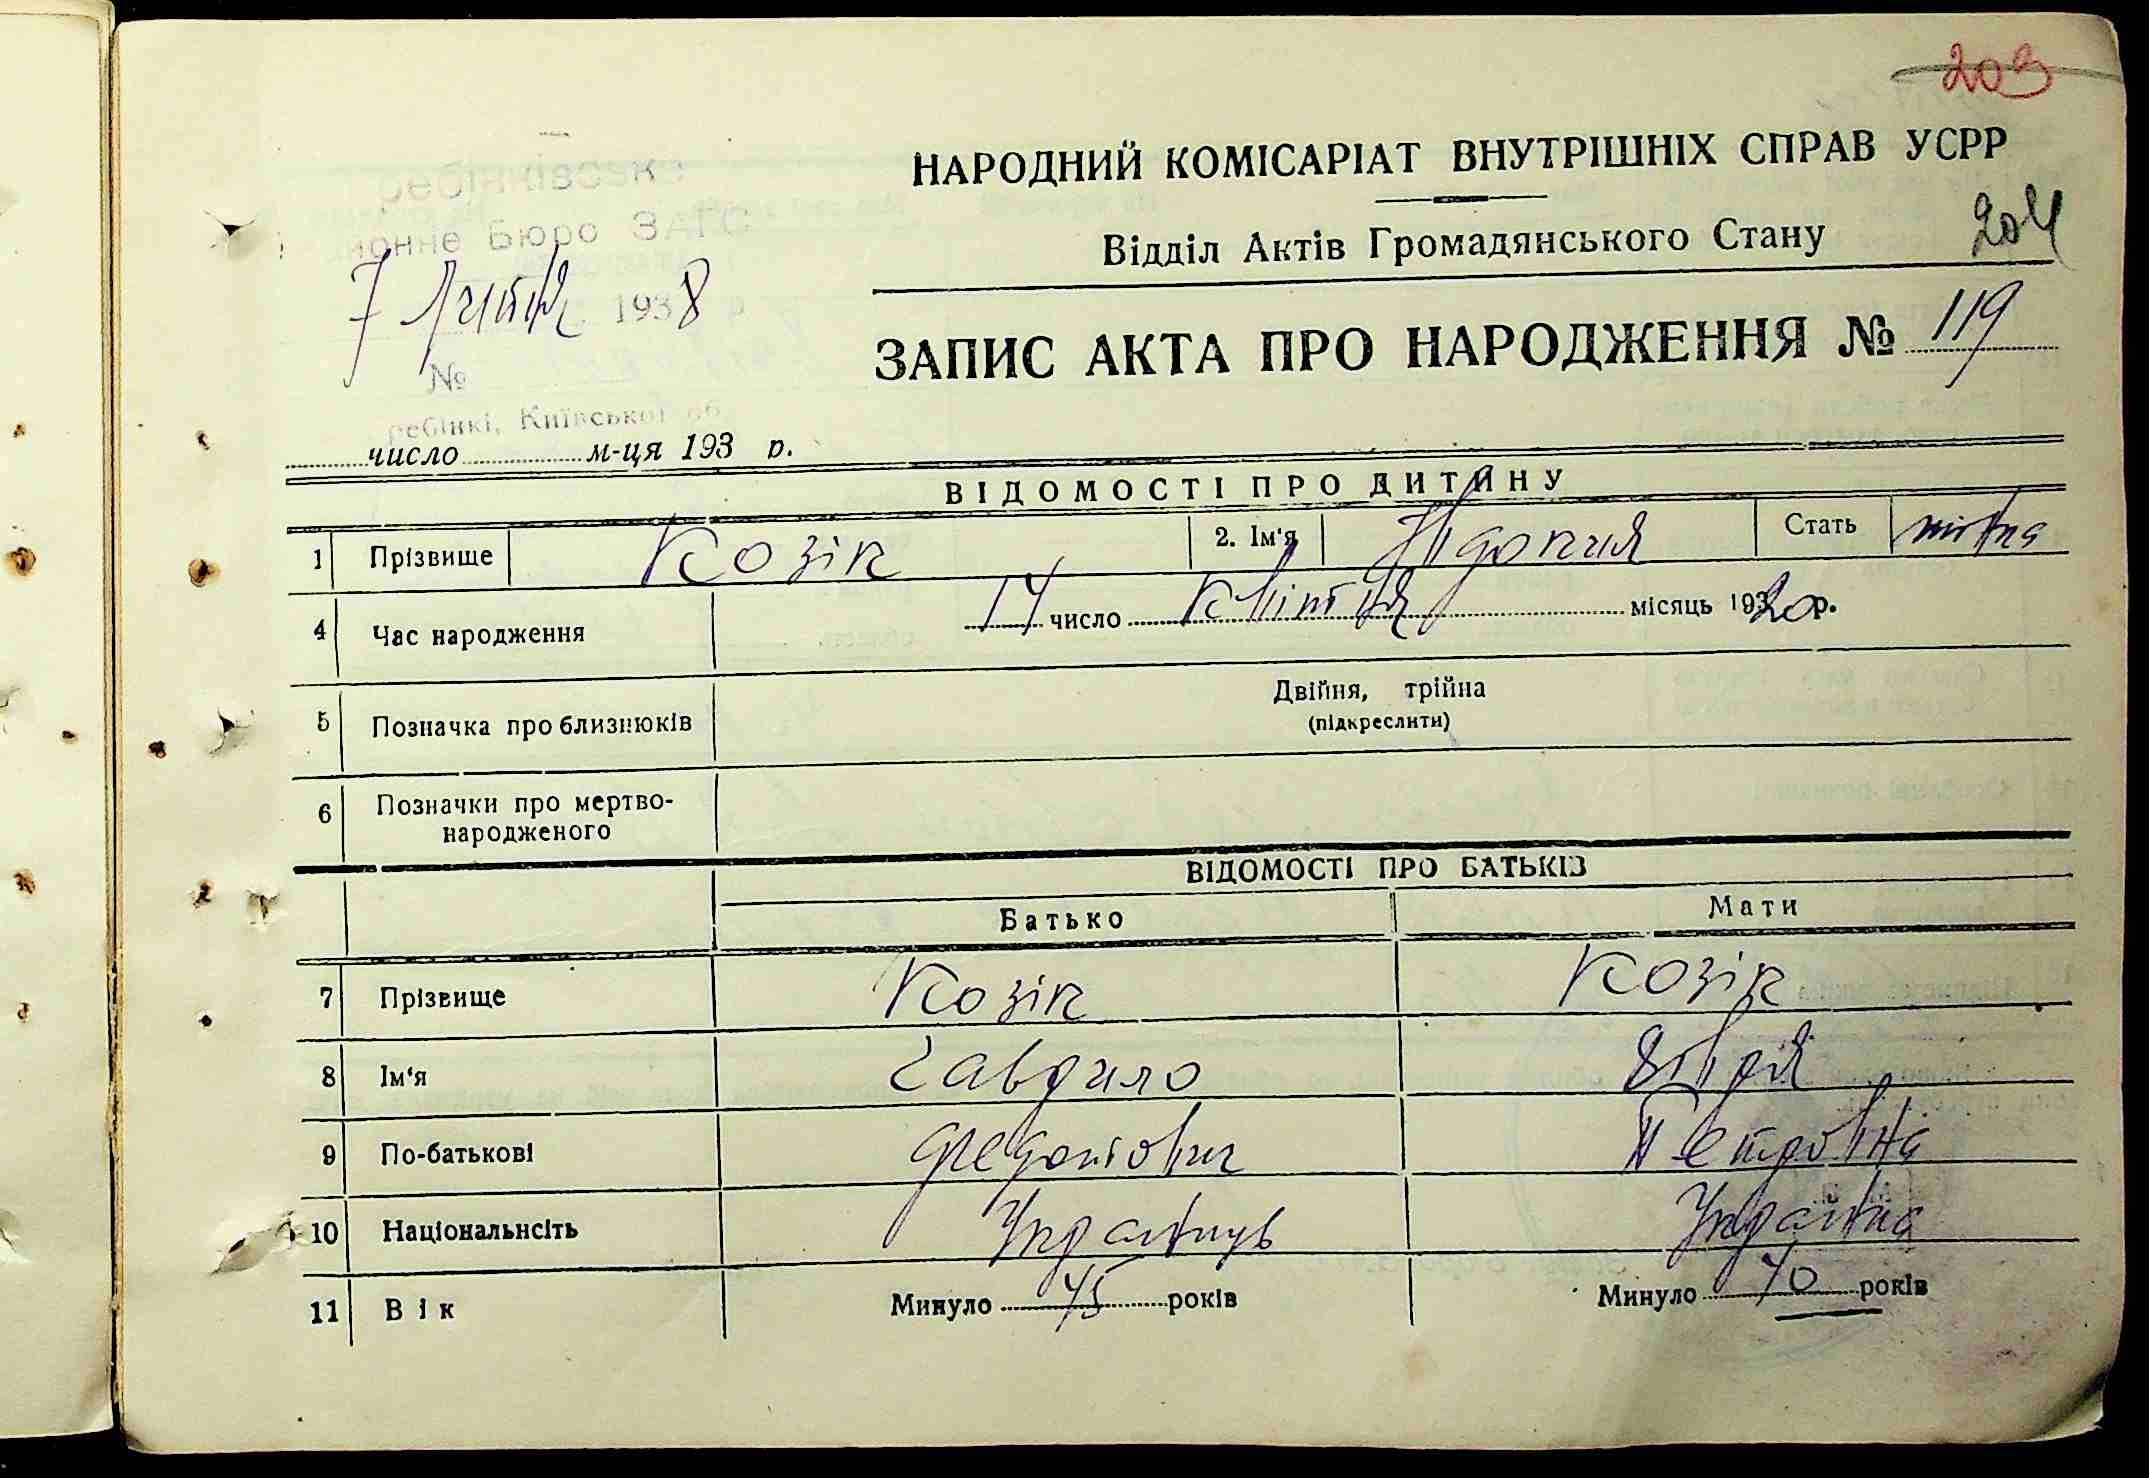 203
НАРОДНИЙ КОМІСАРІАТ ВНУТРІШНІХ СПРАВ УСРР
ребінківське
Відділ Актів Громадянського Стану 204
йонне Бюро ЗАГС
7 липня 1938 р
ЗАПИС АКТА ПРО НАРОДЖЕННЯ № 119
№
ребінкі, Київської об
число м-ця 193 р.
ВІДОМОСТІ ПРО ДИТИНУ
1 Прізвище Козік 2. Ім'я Явдокия Стать жіноча
4 Час народження 14 число квітня місяць 1920 р.
5 Позначка про близнюків Двійня, трійна
(підкреслити)
6 Позначки про мертво-
народженого
ВІДОМОСТІ ПРО БАТЬКІВ
Батько Мати
7 Прізвище Козік Козік
8 Ім'я Гаврило
9 По-батькові Петровна
10 Національнсіть Українець Українка
11 Вік Минуло 45 років Минуло 40 років